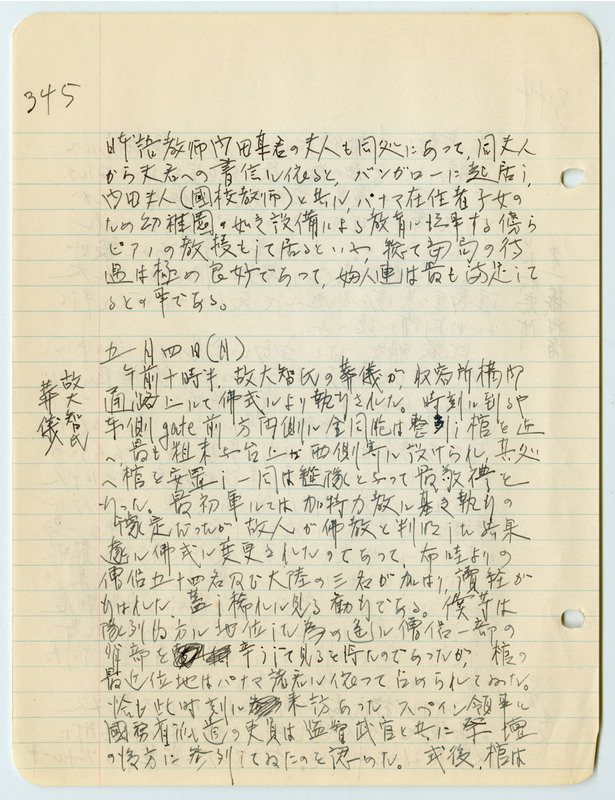 345
日本語教師内田章君の夫人も同処にあって、同夫人
から夫君への書信に依ると、バンガローに起居し、
内田夫人(國校教師)と共にパナマ在住者子女の
ため幼稚園の如き設備による教育に従事する傍ら
ピアノの教授もして居るといふ。総て 待
遇は極め良好であって、婦人連は最も満足して
るとの事である。
五月四日(月)
故大智氏
葬儀
午前十時半、故大智氏の葬儀が、収容所構内
通路上にて佛式により執行された。時刻に到るや
東側gate前方両側に全同胞は整列し棺を迎
へ、最も粗末な台上が西側寄に設けられ、其処
へ棺を安置し一同は縦隊となって最敬禮を
行った。最初軍にては加特力教に基き執行の
豫定だったが故人が佛教と判明した結果
遂に佛式に変更されたのであって、布哇よりの
僧侶五十四名及び大陸の三名が加はり、読経が
行はれた。蓋し稀れに見る である。僕等は
隊列後方に地位した為め遂に僧侶一部の
部を辛うじて見るを得たのであったが、棺の
最近位地はパナマ諸君に依って占められてゐた。
恰も此時刻に来訪あったスペイン領事に
國務省派遣の吏員は監督武官と共に祭壇
の後方に参列してゐたのを認めた。式後、棺は